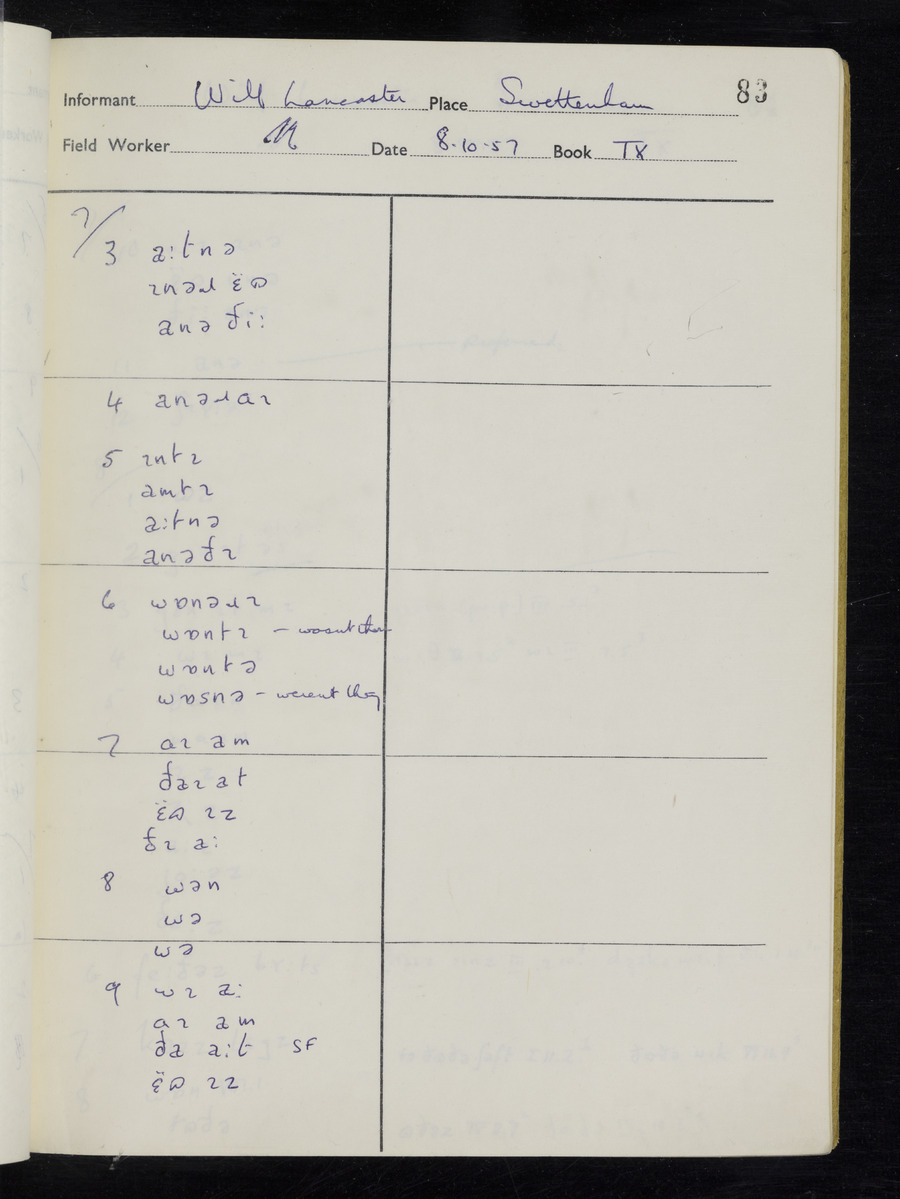 Informant Wilf Lancaster Place Swettenham 83
Field Worker Date 8.10.57 Book TX
7/
3 aːtnə
ɪnəɹ
anə ðiː
4 anəɹaɪ
5 ɪntɪ
amtɪ
aːtnə
anəðɪ
6 wɒnəɹɪ
wɒntɪ – wasnt they
wɒntə
wɒsnə – werent they
7 aɪ am
ðaɪ at
ɪz
ðɪ aː
8 wən
wə
wə
9 wɪ aː
aɪ am
ða aːt SF
ɪz